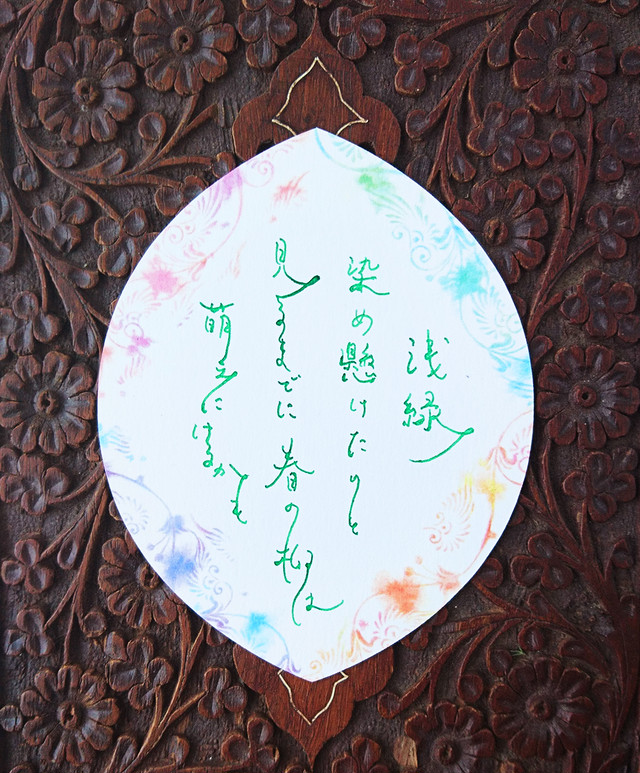 浅緑
染め懸けたりと
見るまでに春の柳は
萌えにけるかも